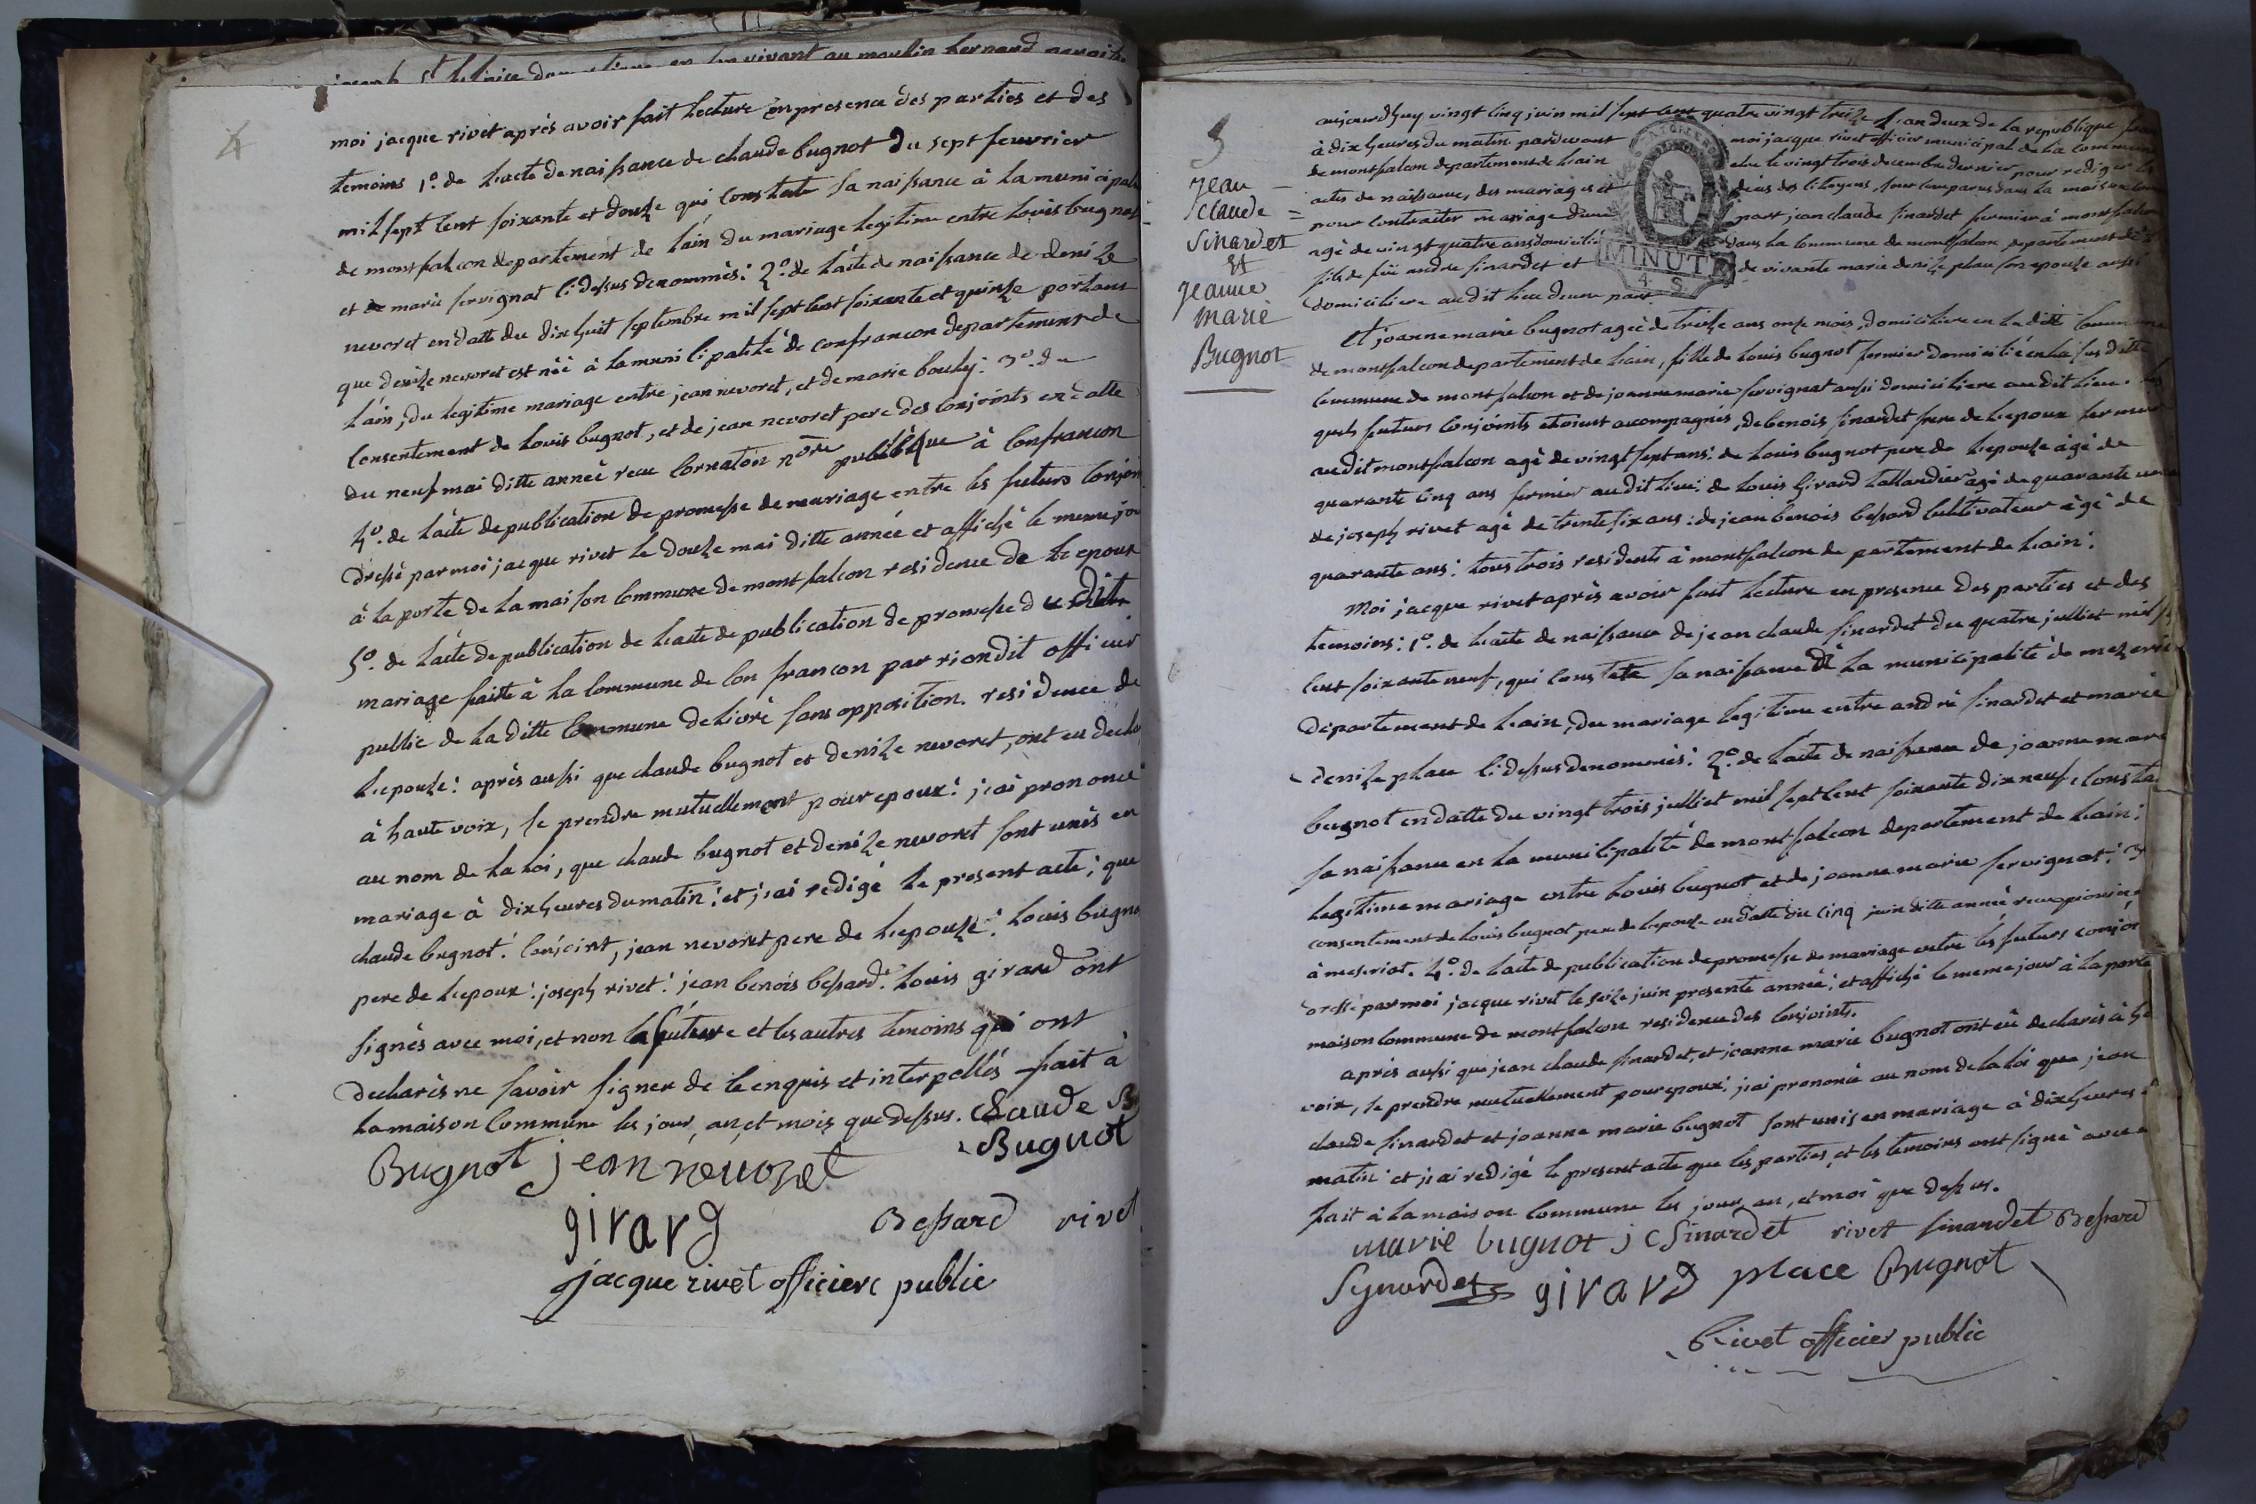 4
moi jacque rivet aprés avoir fait lecture en presence des parties et des
temoins 1º. de l'acte de naissance de claude bugnot du sept feuvrier
mil sept cent soixante et douze qui constate sa naissance à la municipal
de montfalcon departement de l'ain du mariage legitime entre louis bugnot
et de marie servignat ci dessus denommés: 2º. de l'acte de naissance de denize
nevoret en datte du dixhuit septembre mil sept cent soixante et quinze portant
que denize nevoret est née à la municipalité de confrancon departement de
l'ain, du legitime mariage entre jean nevoret, et de marie bouly: 3º. du
consentement de louis bugnot, et de jean nevoret pere des conjoints en datte
du neuf mai ditte année recu cornaton nore publique à confrancon
4º. de l'acte de publication de promesse de mariage entre les futurs conjoin
dressé par moi jacque rivet le douze mai ditte année et affiché le meme jou
à la porte de la maison commune de montfalcon residence de l'epoux
5º. de l'acte de publication de l'acte de publication de promesse du dit
mariage faitte à la commune de confrancon par riondit officier
public de la ditte commune delivré sans opposition. residence de
l'epouze: aprés aussi que claude bugnot et denize nevoret, ont eu decla
à haute voix, se prendre mutuellement pour epoux: j'ai prononcé
au nom de la loi, que claude bugnot et denize nevoret sont unis en
mariage à dix heures du matin: et j'ai redigé le present acte; que
claude bugnot: conjoint, jean nevoret pere de l'epouze: louis bugno
pere de l'epoux: joseph rivet: jean benois bessard: louis girard ont
signés avec moi, et non la future et les autres temoins qui ont
declarés ne savoir signer de ce enquis et interpellés fait à
la maison commune les jour, an, et mois que dessus. Claude B
Bugnot jean nevoret Bugnot
girard Bessard rivet
jacque rivet officiere public
5
Jean
Claude
Sinardet
et
Jeanne
Marie
Bugnot
aujourdhuy vingt cinq juin mil sept cent quatre vingt treize l'an deux de la republique fran
à dix heures du matin pardevant moi jacque rivet officier municipal de la commune
de montfalcon departement de l'ain elu le vingt trois decembre dernier pour rediger les
actes de naissance, des mariages et déces des citoyens, sont comparus dans la maison com
pour contracter mariage d'une part jean claude sinardet fermier à montfalcon
agé de vingt quatre ans domicilié dans la commune de montfalcon departement de l'
fils de feu andre sinardet et de vivante marie denize place son epouze aussi
domiciliere au dit lieu d'une part
MINUTE
4. S.
Et joanne marie bugnot ageé de treize ans onze mois, domiciliere en la ditte commune
de montfalcon departement de l'ain, fille de louis bugnot fermier domicilié en la sus ditte
commune de montfalcon et de joanne marie servignat aussi domiciliere au dit lieu. les
quels futurs conjoints etoient accompagnés, de benois sinardet frere de l'epoux fermier
au dit montfalcon agé de vingt sept ans: de louis bugnot pere de l'epouze agé de
quarante cinq ans fermier au dit lieu: de louis girard tallandier agé de quarante
de joseph rivet agé de trente six ans: de jean benois bessard cultivateur agé de
quarante ans: tous trois residents à montfalcon departement de l'ain:
Moi jacque rivet aprés avoir fait lecture en presence des parties et des
temoins: 1º. de l'acte de naissance de jean claude sinardet du quatre julliet mil s
cent soixante neuf, qui constate sa naissance de la municipalité de mezeria
departement de l'ain, du mariage legitime entre andré sinardet et marie
denize place ci dessus denommés: 2º. de l'acte de naissance de joanne mar
bugnot en datte du vingt trois julliet mil sept cent soixante dix neuf, consta
sa naissance en la municipalité de montfalcon departement de l'ain;
legitime mariage entre louis bugnot et de joanne marie servignat: 3º
consentement de louis bugnot pere de l'epouze en datte du cinq juin ditte année recu
à meseriat. 4º. de l'acte de publication de promesse de mariage entre les futurs conjoi
dressé par moi jacque rivet le seize juin presente année; et affiché le meme jour à la porte
maison commune de montfalcon residence des conjoints.
aprés aussi que jean claude sinardet, et joanne marie bugnot ont eû declarés à h
voix, se prendre mutuellement pour epoux; j'ai prononcé au nom de la loi que jean
claude sinardet et joanne marie bugnot sont unis en mariage à dix heures
matin et j'ai redigé le present acte que les parties, et les temoins ont signé avec
fait à la maison commune les jour, an, et moi que dessus.
marie bugnot j C Sinardet rivet sinardet Bessard
Synardet girard place Bugnot
Rivet officier public